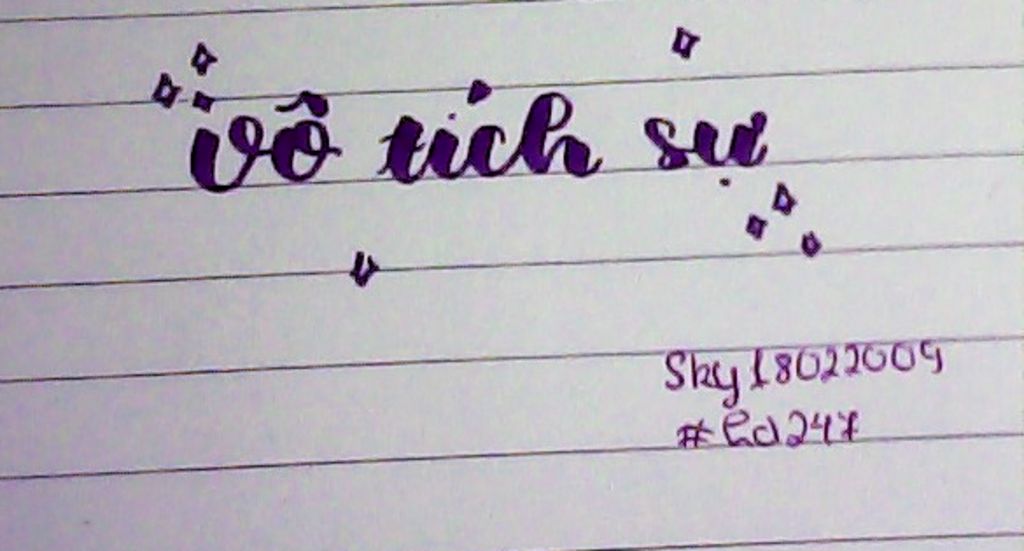 vô tích sự
Sky18022009
#Ed247